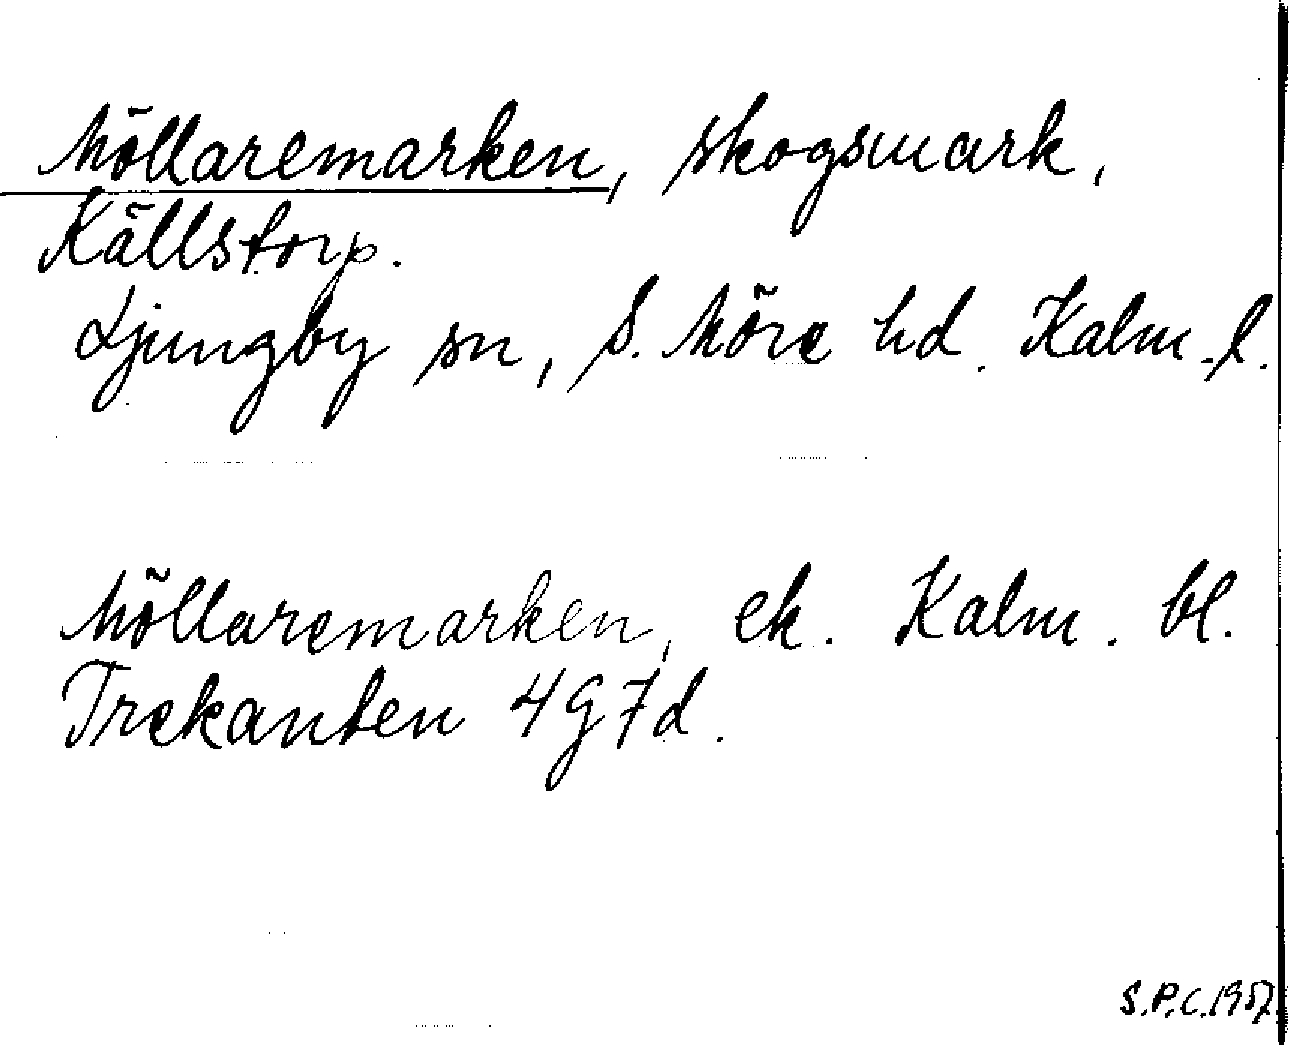 Möllaremarken, skogsmark,
Källstorp.
Ljungby sn, S. Möre hd. Kalm. l.
Möllaremarken, ek. Kalm. bl.
Trekanten 4G7d.
S.P.C. 1957.